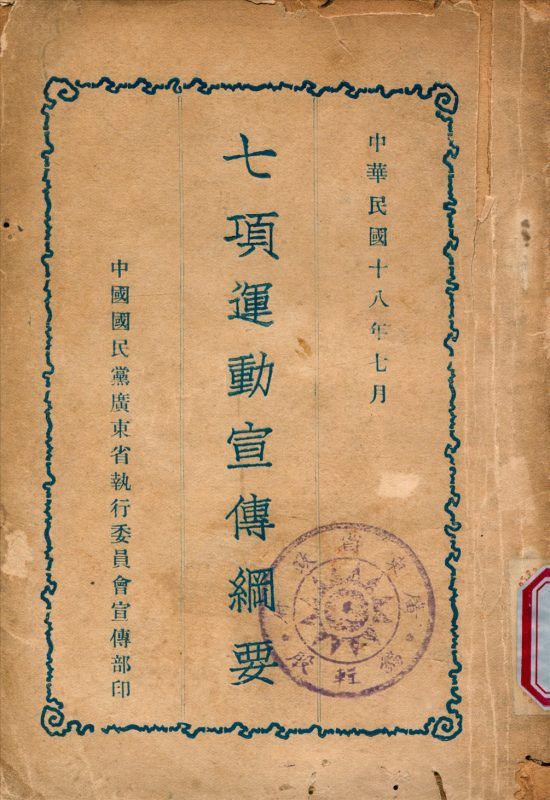 中華民國十八年七月
七項運動宣傳綱要
中國國民黨廣東省執行委員會宣傳部印
廣東省政府